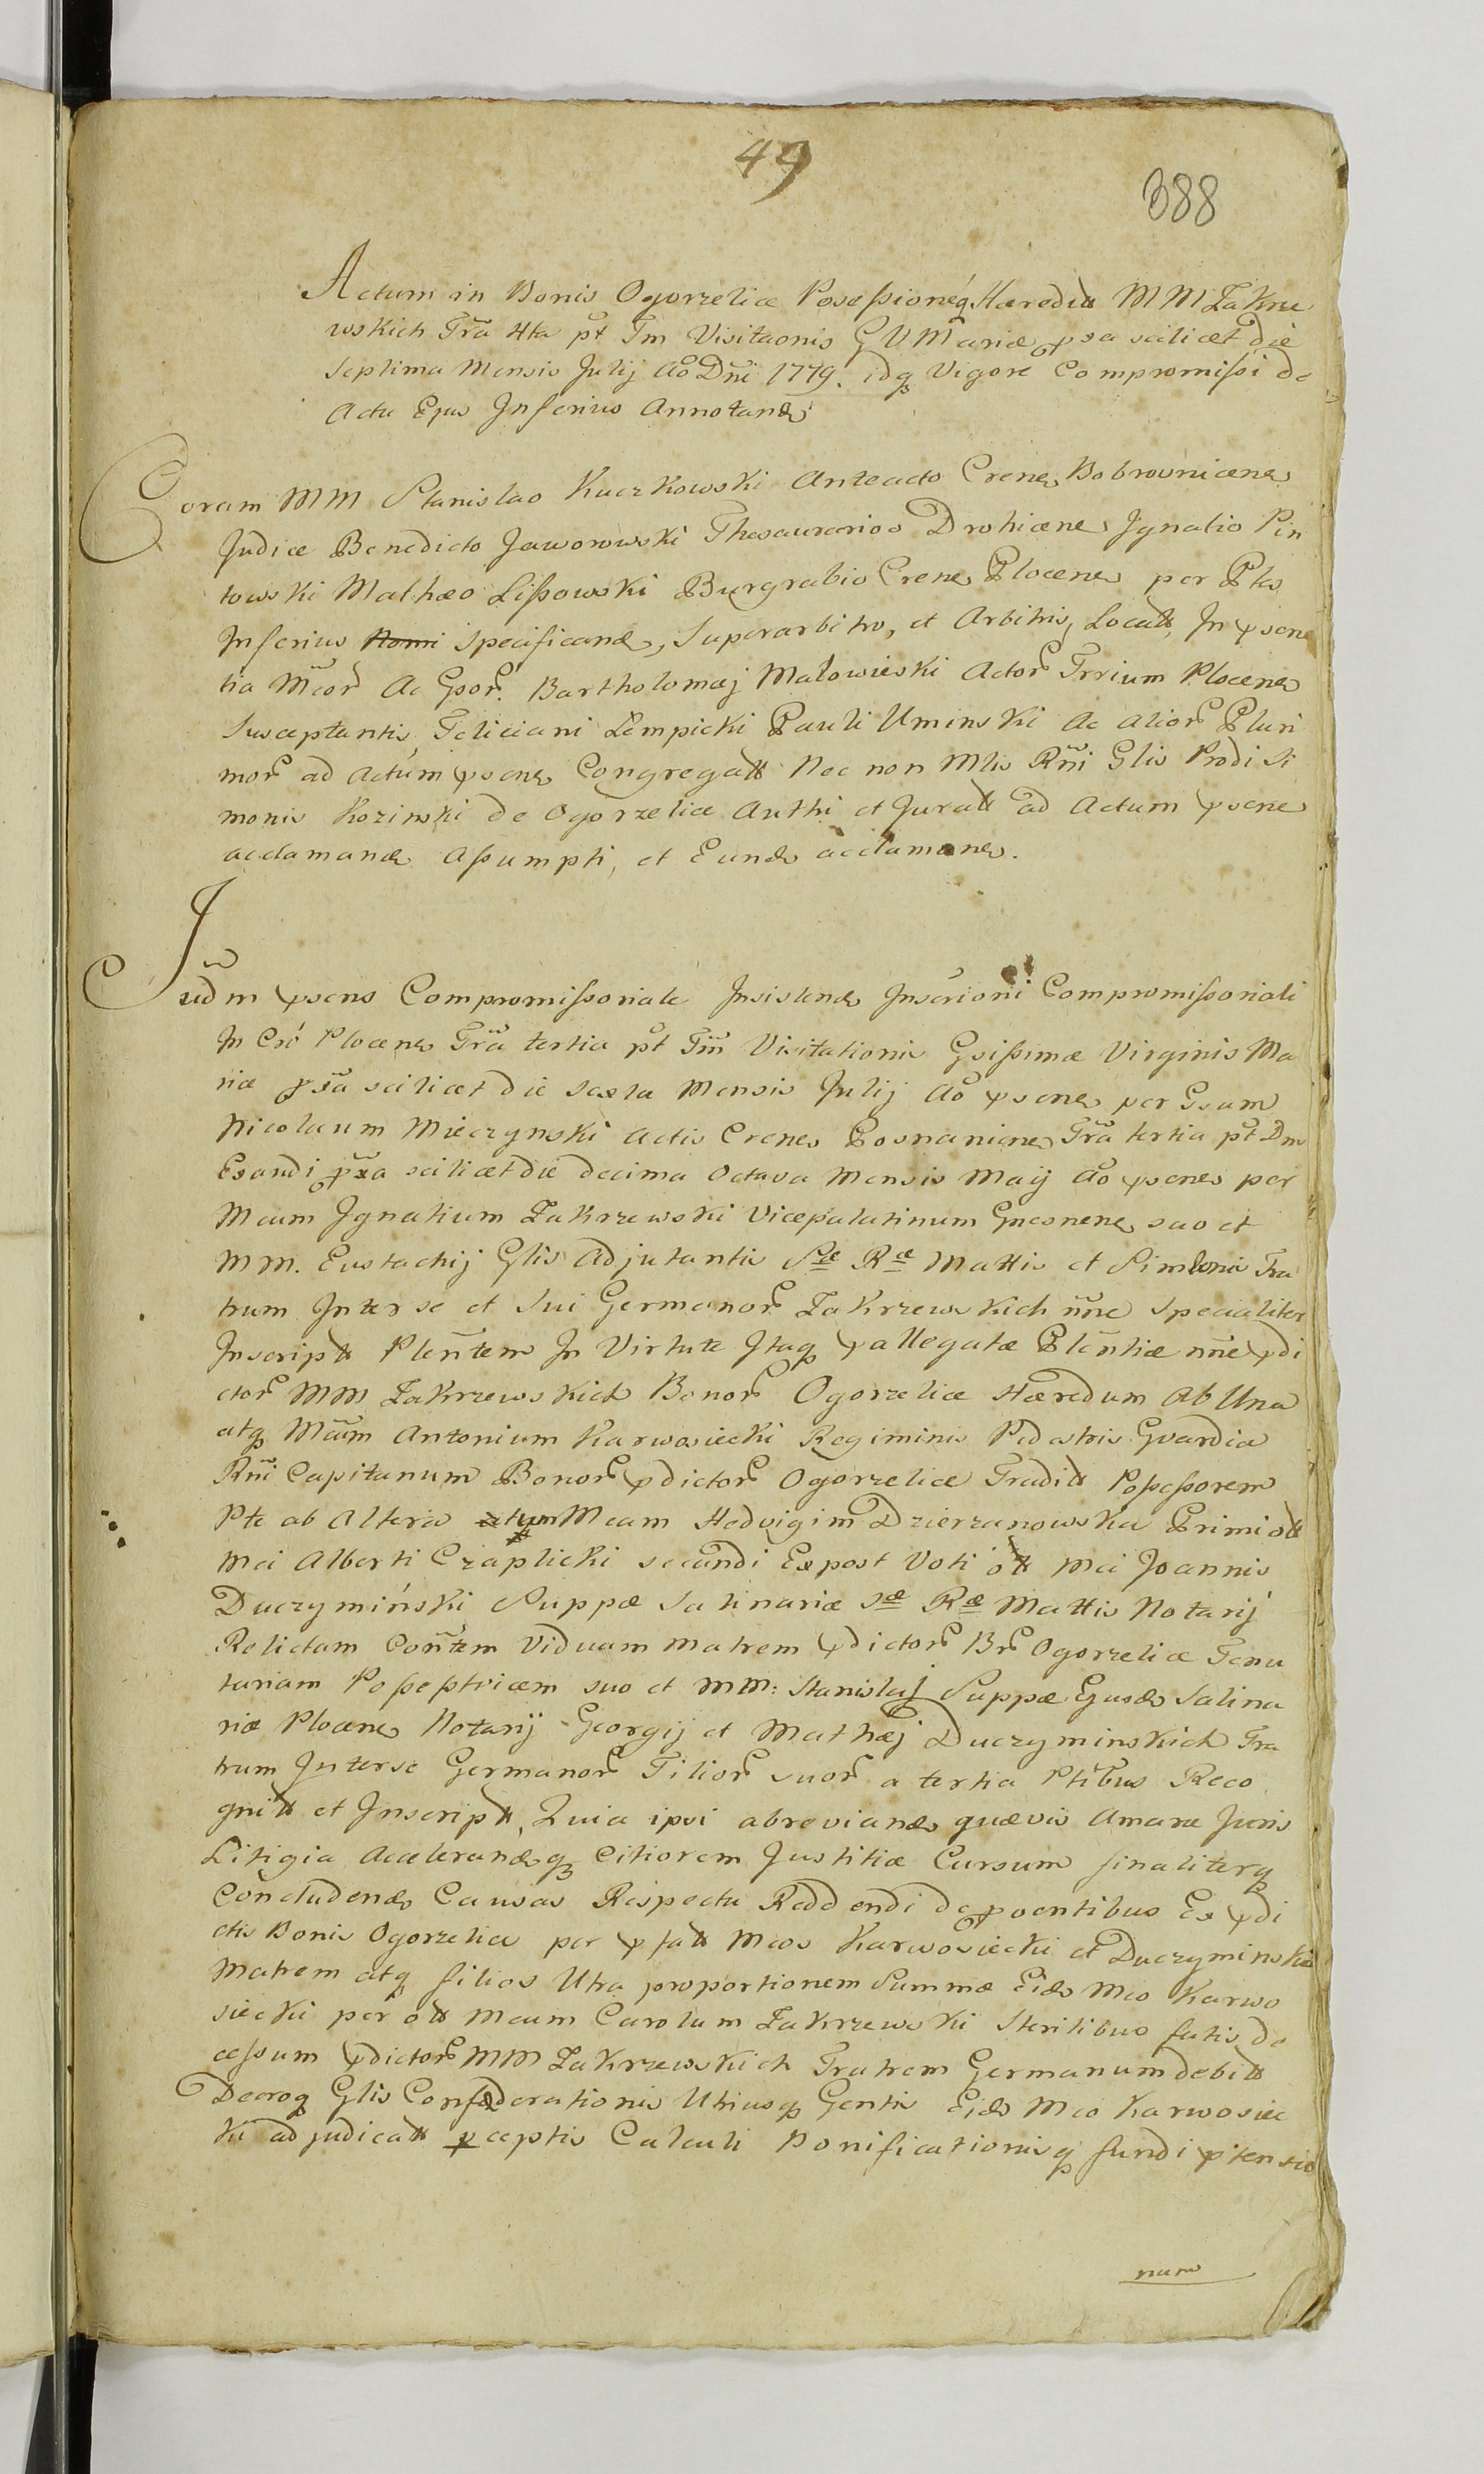 49
388
Actum in Bonis Ogorzelice Possessioneq Hæredit MM Zakrze
wskich Fra 4ta pt Fm Visitaonis G V Mariæ pxa scilicet die
Septima Mensis Julij Ao Dni 1779. idq Vigore Compromissi de
Actu Ejus Inferius Annotand
Coram MM Stanislao Kuczkowski Anteacto Crens Bobrownicens
Judice Benedicto Jaworowski Thesaurario Drohicens Ignatio Pin
towski Mathæo Lissowski Burgrabio Crens Plocens per Ptes
Inferius Nomi specificand, Superarbitro, et Arbitris, Locatt, In psen
tia Mcor Ac Gsor. Bartholomæj Małowieski Actor Trrium Plocens
Susceptantis, Feliciani Lempicki Pauli Uminski Ac Alior Pluri
mor ad Actum psens Congregatt Nec non Mtis Rni Glis Prodi Si
monis Kozinski de Ogorzelice Authi et Juratt ad Actum psens
acclamand Assumpti, et Eund acclamans.
Judm psens Compromissoriale Insistend Inscrioni Compromissoriali
In Cró Plocens Fra tertia pt Fm Visitationis Gsissimæ Virginis Ma
riæ pxa scilicet die sexta Mensis Julij Ao psens per Gsum
Nicolaum Mieczynski Actis Crens Posnaniens Fra tertia pt Dm
Exaudi pxa scilicet die decima Octava Mensis Maij Ao psens per
Mcum Ignatium Zakrzewski Vicepalatinum Gnesnens suo et
MM. Eustachij Glis Adjutantis Sæ Ræ Mattis et Simeonis Fra
trum Inter se et Sui Germanor Zakrzewskich nne Specialiter
Inscript Plentem In Virtute Itaq pallegatæ Plentiæ nne pdi
ctor MM Zakrzewskich Bonor Ogorzelice Hæredum Ab Una
atq Mcum Antonium Karwosiecki Regiminis Pedestris Gvardia
Rni Capitanum Bonor pdictor Ogorzelice Tradit Possessorem
Pte ab Altera Mcam Hedvigim Dzierzanowska Primi ott
Mci Alberti Czaplicki secundi Expost Voti ott Mci Joannis
Duczymiński Suppæ Salinariæ Sæ Ræ Mattis Notarij
Relictam Contem Viduam Matrem pdictor Br Ogorzelice Tenu
tariam Possestricem suo et MM: Stanislaj Suppæ Ejusd Salina
riæ Plocens Notarij Georgij et Mathæj Duczyminskich Fra
trum Interse Germanor Filior suor a tertia Ptibus Reco
gnitt et Inscript, Quia ipsi abreviand quævis Amaræ Juris
Litigia Accelerandq Citiorem Justitiæ Cursum finaliterq
Concludend Causas Respectu Reddendi de poentibus Ex pdi
ctis Bonis Ogorzelice per pfatt Mcos Karwosiecki et Duczyminskie
Matrem atq filios Utra proportionem Summæ Eid Mco Karwo
siecki per ott Mcum Carolum Zakrzewski Sterilibus fatis de
cessum pdictor MM Zakrzewskich Fratrem Germanum debitt
Decroq Glis Confæderationis Utriusq Gentis Eid Mco Karwosiec
ki adjudicatt pceptis Calculi Bonificationisq fundi ptensio
num